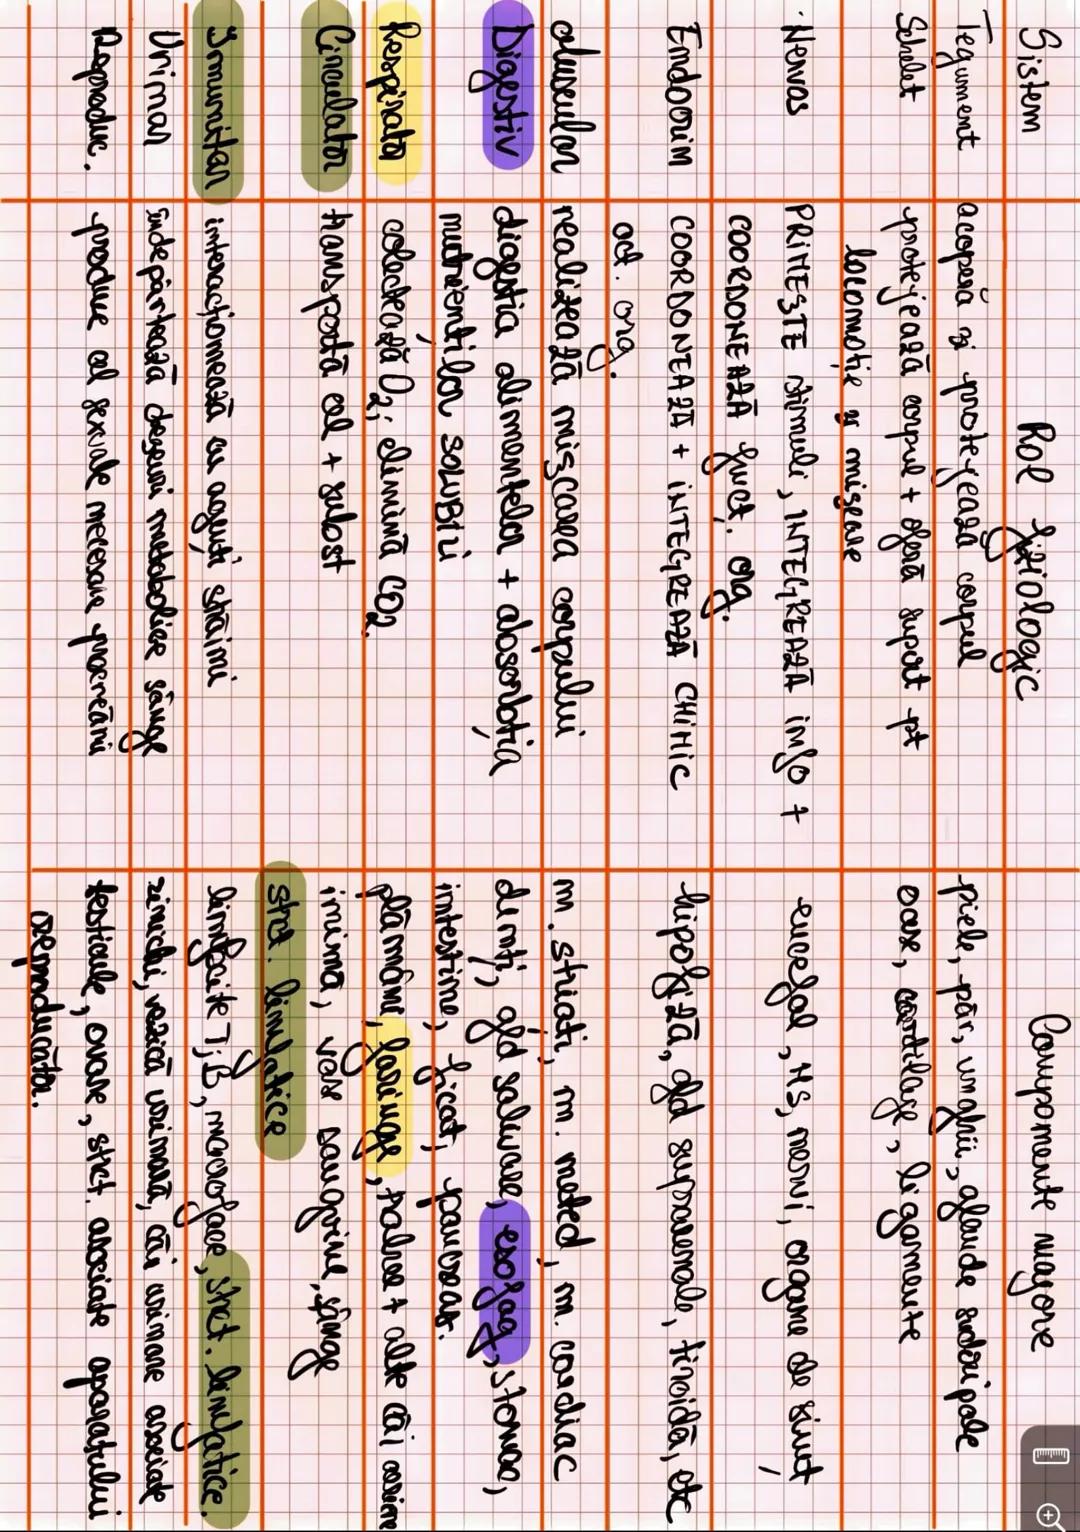 Sistem Rol fiziologic Componente majore
Tegument acoperă și protejează corpul piele, păr, unghii, glande sudoripale
Schelet protejează corpul + oferă suport pt oase, cartilage, ligamente
locomoție și mișcare
Nervos PRIMEȘTE stimuli, INTEGREAZĂ info + encefal, MS, nervi, organe de simț
COORDONEAZĂ funct. org.
Endocrin COORDONEAZĂ + INTEGREAZĂ CHIMIC hipofiză, gld suprarenale, tiroidă, etc
act. org.
Muscular realizează mișcarea corpului m. striați, m. neted, m. cardiac
Digestiv digestia alimentelor + absorbția dinți, gld salivare, esofag, stomac,
nutrienților SOLUBILI intestine, ficat, pancreas.
Respirator colectează O2; elimină CO2. plămâni, laringe, trahee + alte căi
Circulator transportă cel + subst inimă, vase sangvine, sînge
strct. limfatice
Imunitar interacționează cu agenți străini limfocite T; B, macrofage, strct. limfatice.
Urinar îndepărtează deșeuri metabolice sânge rinichi, vezică urinară, căi urinare asociate
Reproduc. produc cel sexuale necesare procreării testicule, ovare, strct. asociate aparatului
reproducător.